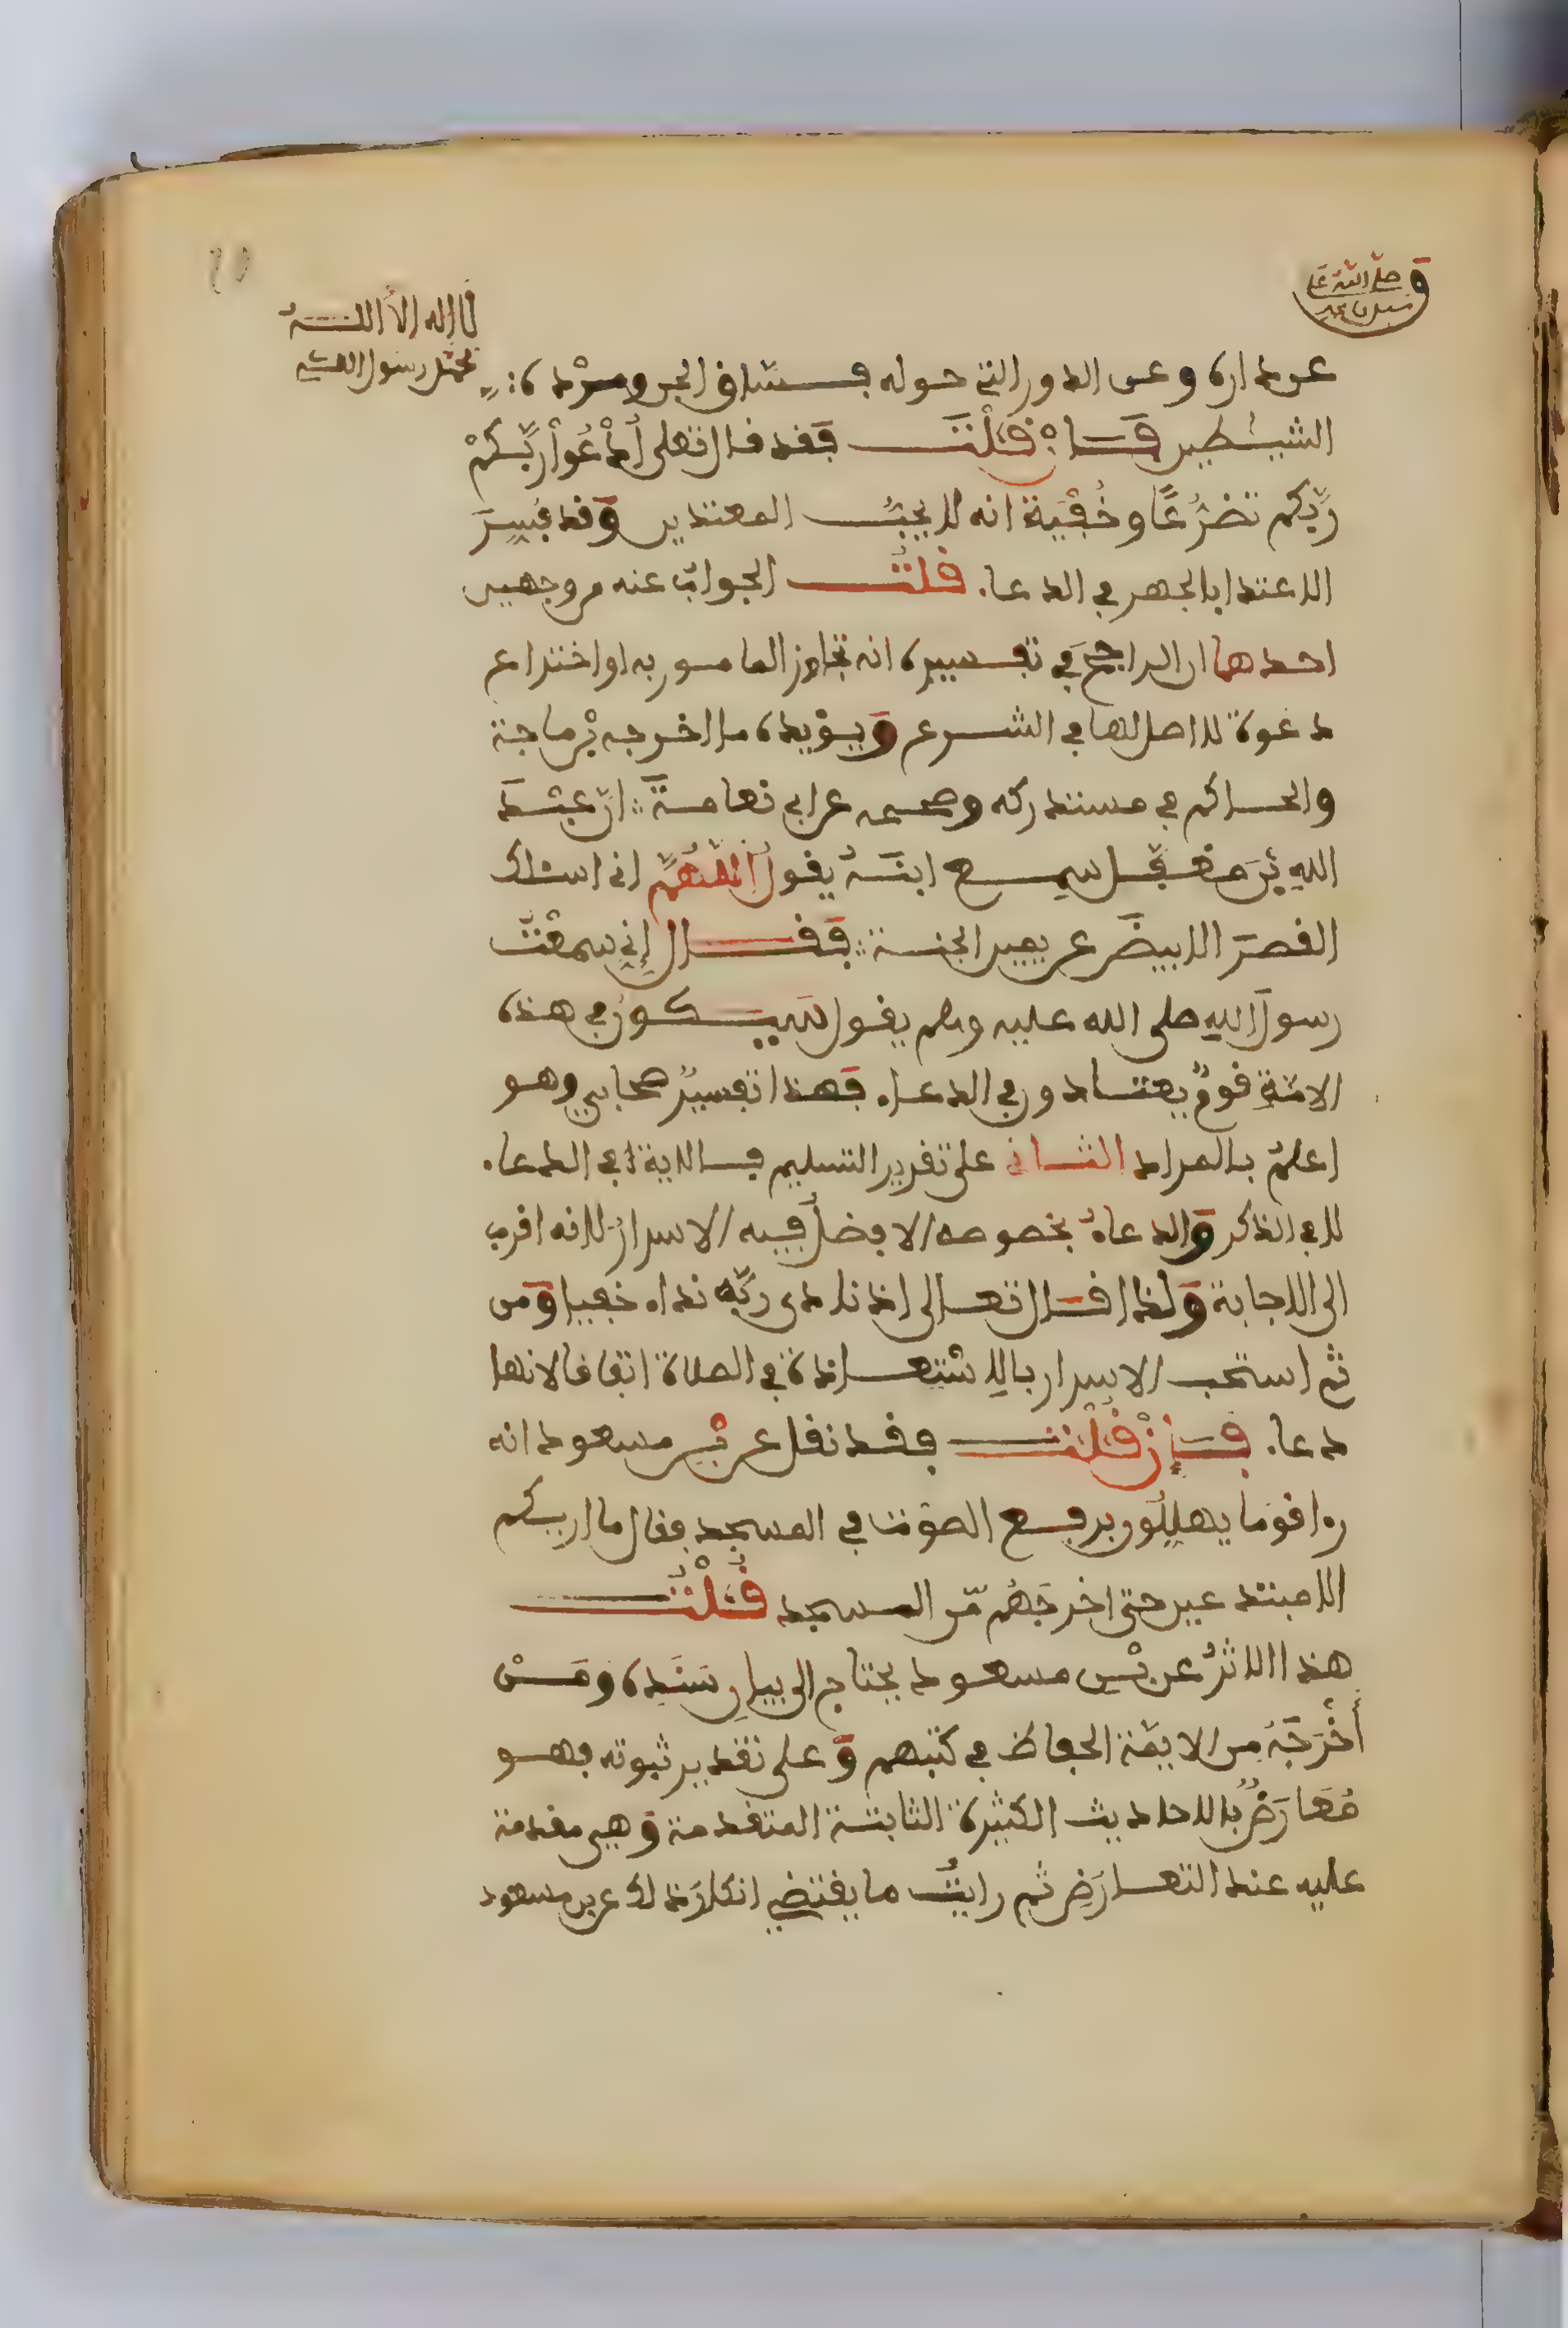 و صلى الله على
سيدنا محمد
لا اله إلا الله
محمد رسول الله
عن داره وعن الدور التي حوله فساق الجن ومردة
الشيطين فإن قلت فقد قال تعلى أدعوا ربكم
ربكم تضرعا وخفية انه لا يحب المعتدين وقد فسر
الاعتدا بالجهر في الدعا. قلت الجواب عنه من وجهين
احدهما ان الراجح في تفسيره انه تجاوز المامور به او اختراع
دعوة لا اصل لها في الشرع ويؤيده ما اخرجه بن ماجة
والحاكم في مستدركه وصححه عن ابي نعامة ان عبد
الله بن مغفل سمع ابنه يقول اللهم اني اسئلك
القصر الابيض عن يمين الجنة فقال إني سمعت
رسول الله صلى الله عليه وسلم يقول سيكون في هذه
الامة قوم يعتدون في الدعا. فهذا تفسير صحابي وهو
اعلم بالمراد الثاني على تقرير التسليم فالاية في الدعا.
لا في الذكر والدعاء بخصوصه الافضل فيه الاسرار لانه اقرب
الى الاجابة ولذا قال تعالى اذ نادى ربه نداء خفيا ومن
ثم استحب الاسرار بالاستعاذة في الصلاة اتفاقا لانها
دعا. فإن قلت فقد نقل عن بن مسعود انه
رءا قوما يهللون برفع الصوت في المسجد فقال ما اريكم
الا مبتدعين حتى اخرجهم من المسجد قلت
هذا الاثر عن بن مسعود يحتاج الى بيان سنده ومن
أخرجه من الايمة الحفاظ في كتبهم وعلى تقدير ثبوته فهو
معارض بالاحاديث الكثيرة الثابتة المتقدمة وهي مقدمة
عليه عند التعارض ثم رايت ما يقتضي انكار ذلك عن بن مسعود